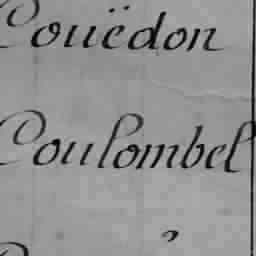 Couëdon
Coulombel